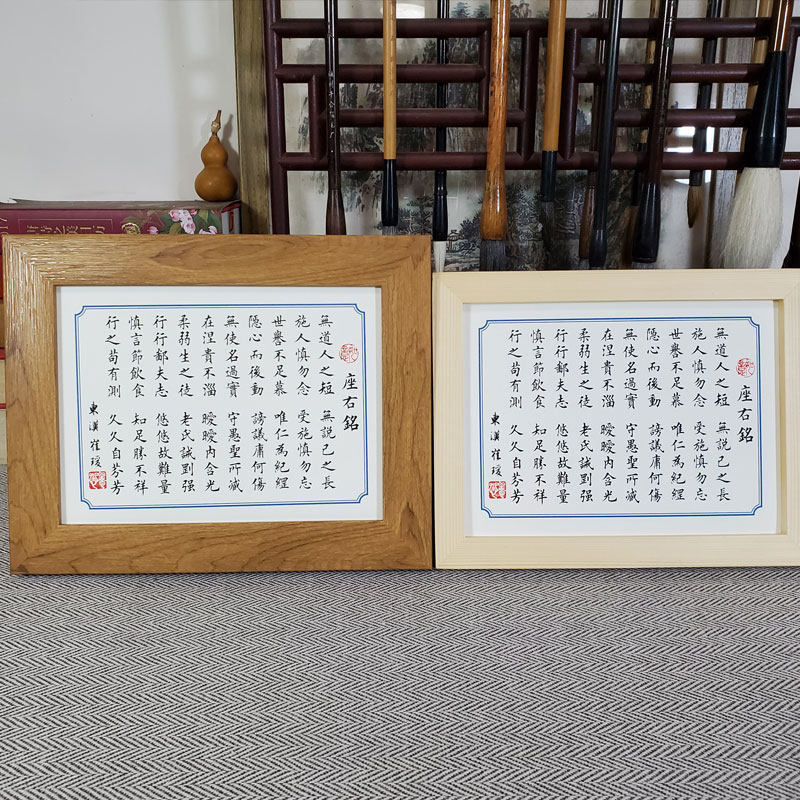 座右銘
無道人之短 無説己之長
施人慎勿念 受施慎勿忘
世譽不足慕 唯仁為紀綱
隐心而後動 謗議庸何傷
無使名過實 守愚聖所臧
在涅貴不淄 曖曖内含光
柔弱生之徒 老氏誡剛强
行行鄙夫志 悠悠故難量
慎言節飲食 知足勝不祥
行之苟有恆 久久自芬芳
東漢 崔瑗
座右銘
無道人之短 無説己之長
施人慎勿念 受施慎勿忘
世譽不足慕 唯仁為紀綱
隐心而後動 謗議庸何傷
無使名過實 守愚聖所臧
在涅貴不淄 曖曖内含光
柔弱生之徒 老氏誡剛强
行行鄙夫志 悠悠故難量
慎言節飲食 知足勝不祥
行之苟有恆 久久自芬芳
東漢 崔瑗